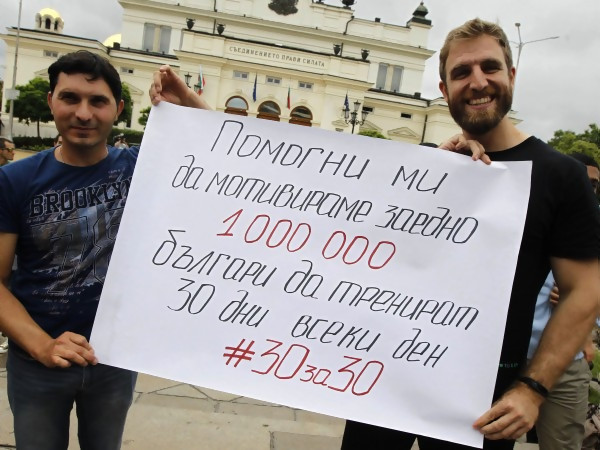 СЪЕДИНЕНИЕТО ПРАВИ СИЛАТА
BROOKLYN
Помогни ми
да мотивираме заедно
1 000 000
българи да тренират
30 дни всеки ден
#30за30